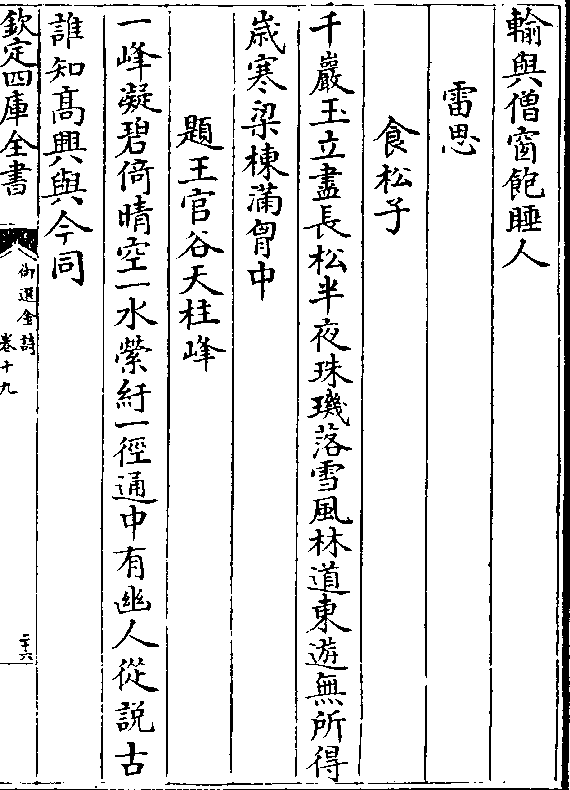 輸與僧窗飽睡人
雷思
食松子
千巖玉立盡長松半夜珠璣落雪風林道東遊無所得
歳寒梁棟滿胷中
題王官谷天柱峰
一峰凝碧倚晴空一水縈紆一徑通中有幽人從説古
誰知髙興與今同
欽定四庫全書
御選金詩
卷十九
二十六